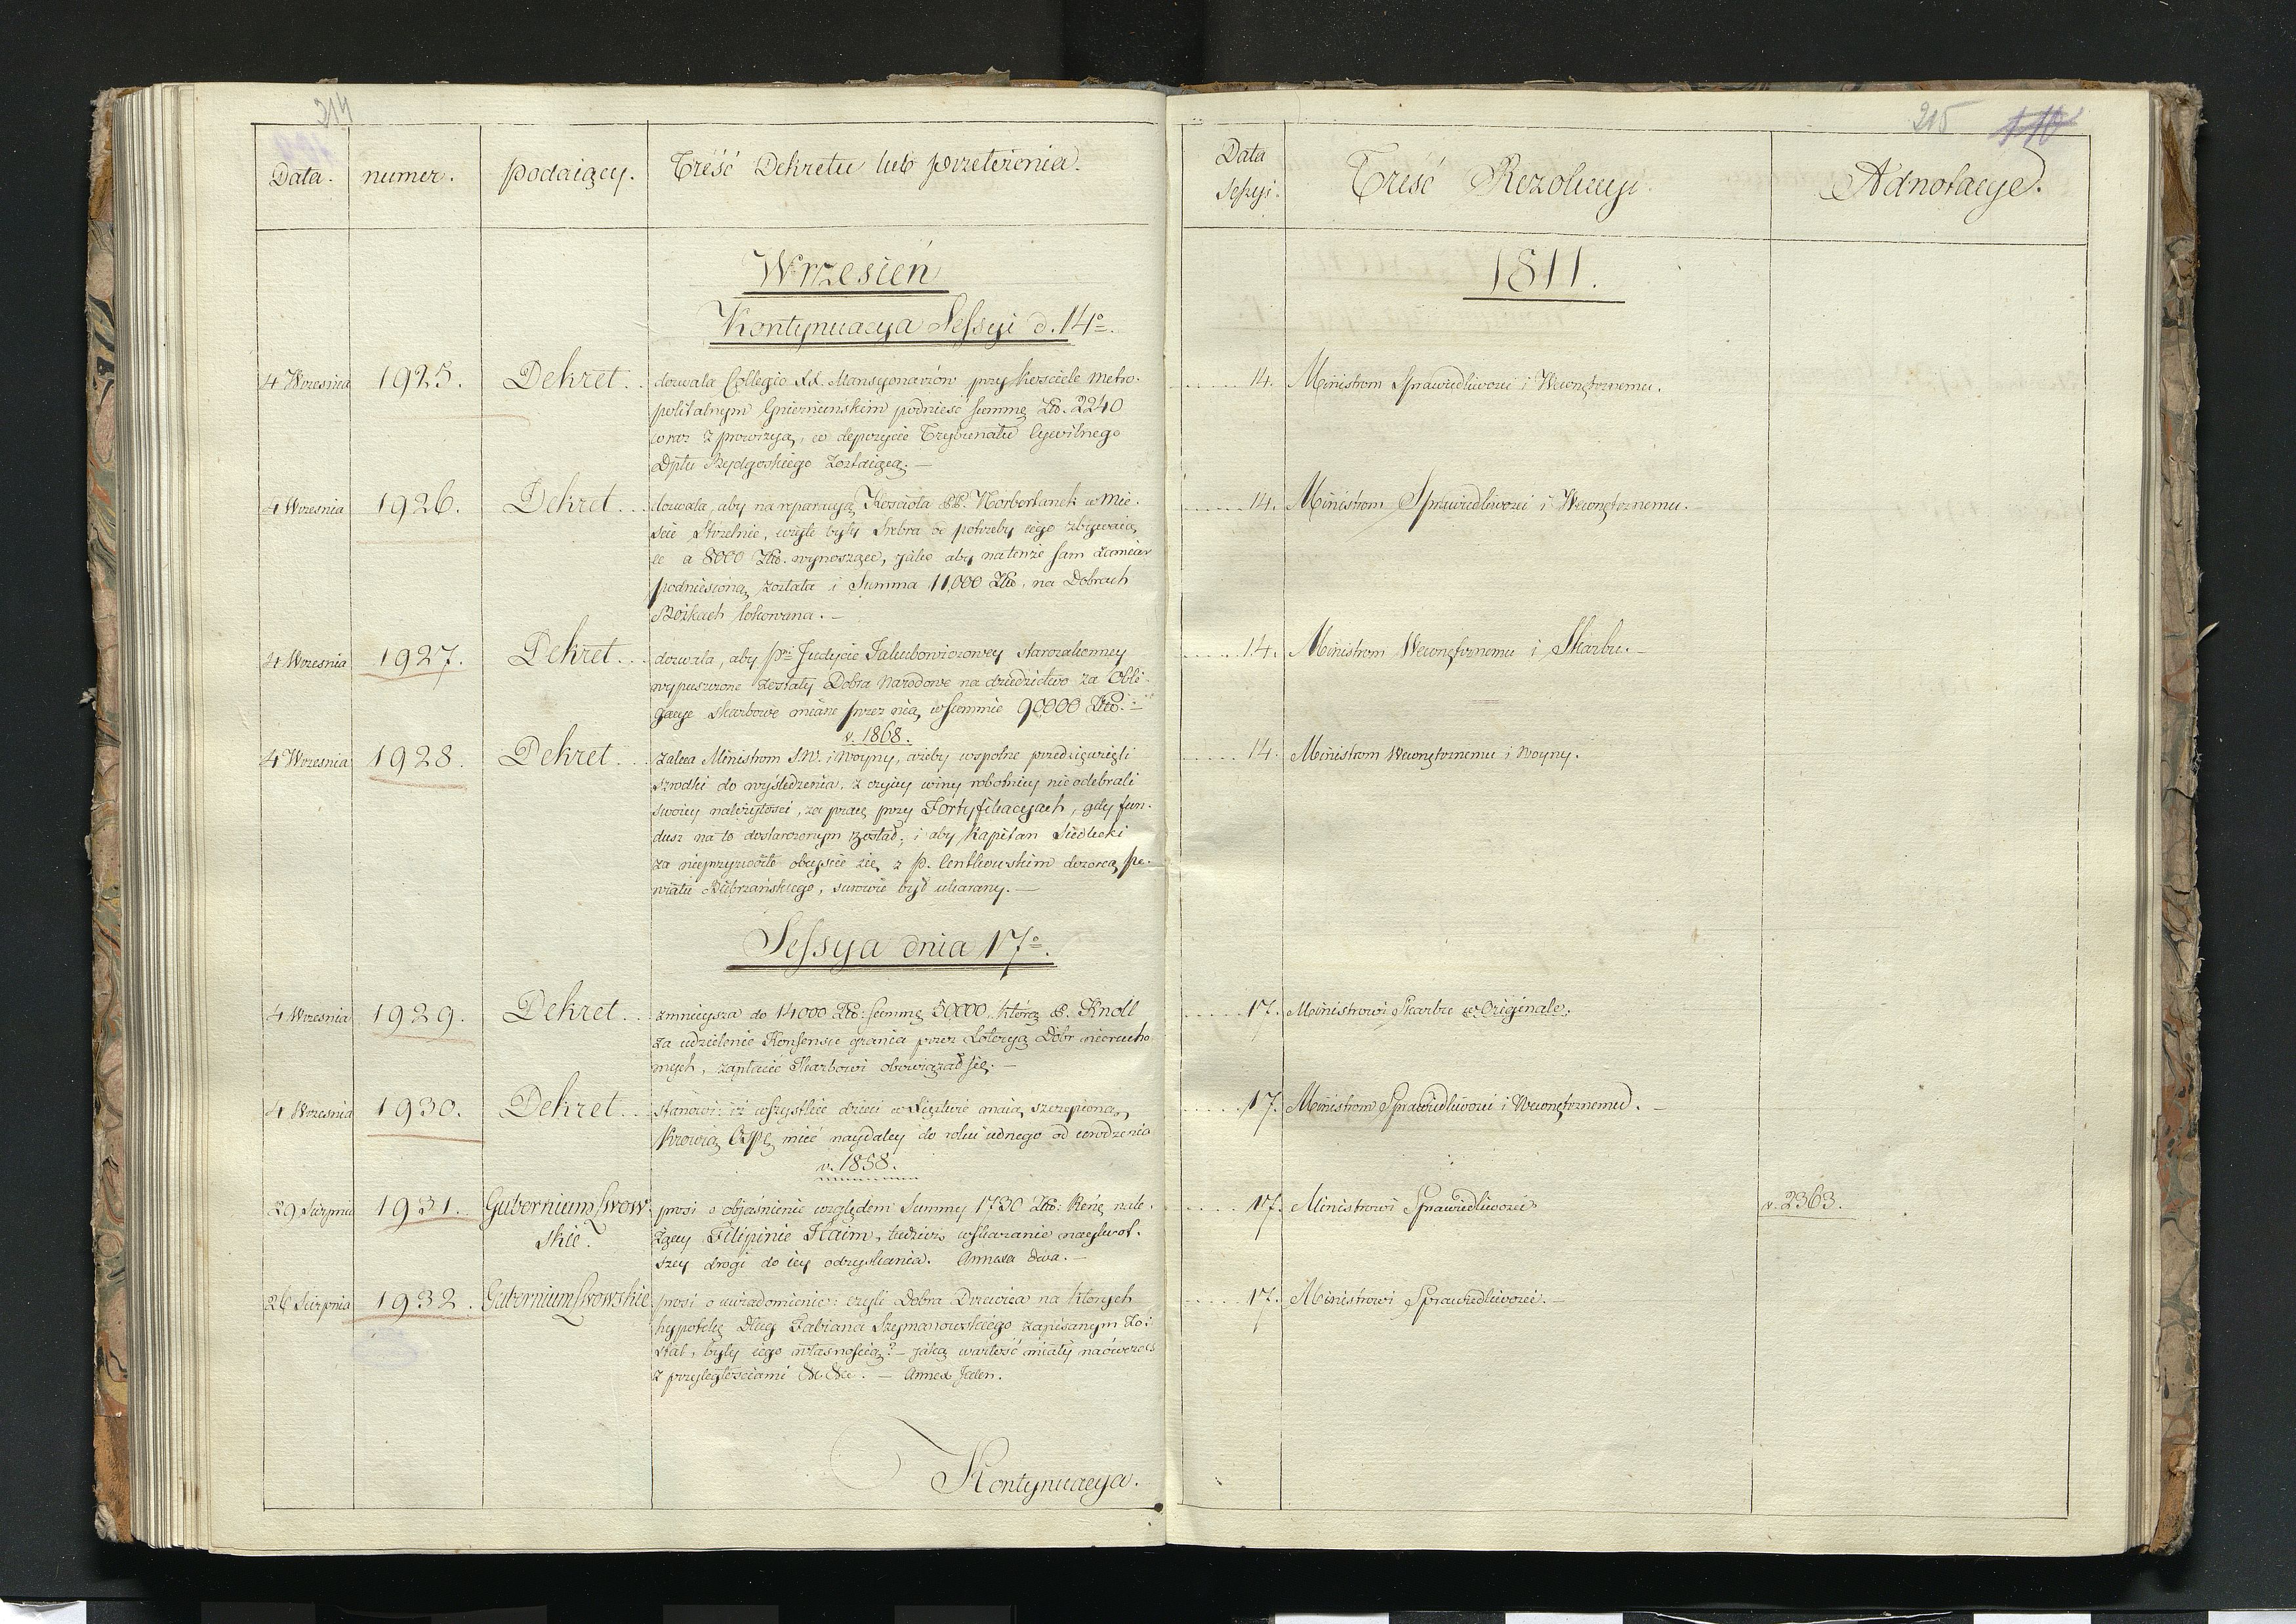 214
Data.
numer.
podaiący.
Treść Dekretu lub przełożenia.
Wrzesień
Kontynuacya Sessyi d. 14º.
4 Wrzesnia 1925. Dekret. dozwala Collegio XX. Mansyonarzów przy kosciele metro-
politalnym Gnieznienskim podnieść summę Złp. 2240
wraz z prowizyą, w depozycie Trybunału Cywilnego
Dptu Bydgoskiego zostaiącą. —
4 Wrzesnia 1926. Dekret. dozwala, aby na reparacyą Kościoła PP. Norbertanek w mie-
scie Strzelnie, użyte były srebra od potrzeby iego zbywaią-
ce a 8000 Złp. wynoszące, jako aby na tenże sam zamiar
podniesioną została i Summa 11,000 Złp. na Dobrach
Bożkach lokowana. —
4 Wrzesnia 1927. Dekret. dozwala, aby Pni Judycie Jakubowiczowey starozakonney
wypuszczone zostały Dobra Narodowe na dziedzictwo za Obli-
gacye skarbowe miane przez nią w summie 90000 Złp. —
v. 1868.
4 Wrzesnia 1928. Dekret. zaleca Ministrom S.W. i Woyny, ażeby wspolne przedsięwzięli
szrodki do wyśledzenia, z czyiey winy robotnicy nie odebrali
swoiey należytości, za pracę przy Fortyfikacyach, gdy fun-
dusz na to dostarczonym został; i aby Kapitan Siedlecki
za nieprzyzwoite obeyscie się z P. Centkowskim dozorcą po-
wiatu , surowie był ukarany. —
Sessya dnia 17º.
4 Wrzesnia 1929. Dekret. zmnieysza do 14000 Złp: summę 50000. którą P. Knoll
za udzielenie Konsensu grania przez Loteryą Dobr nierucho-
mych, zapłacić Skarbowi obowiązał się. —
4 Wrzesnia 1930. Dekret. stanowi: iż wszystkie dzieci w Xięstwie maią szczepioną
krowią Ospę mieć naydaley do roku iednego od urodzenia
v. 1858.
29 Sierpnia 1931. Gubernium Lwow prosi o objaśnienie względem Summy 1730 Złp: Reńs nale-
skie. żącey Filipinie Haim, tudzież wskazanie naykrot-
szey drogi do iey odzyskania. Annexa dwa. —
26 Sierpnia 1932. Gubernium Lwowskie prosi o uwiadomienie: czyli Dobra Drzewica na których
hypotekę Dług Fabiana Szymanowskiego zapisanym zo-
stał, były iego własnością? — jaką wartość miały naówczas
z przyległościami &c &c. — Annex Jeden.
Kontynuacya.
215
110
Data
Sessyi.
Treść Rezolucyi.
Adnotacye.
1811.
14. Ministrom Sprawiedliwości i Wewnętrznemu.
14. Ministrom Sprawiedliwości i Wewnętrznemu.
14. Ministrom Wewnętrznemu i Skarbu. —
14. Ministrom Wewnętrznemu i Woyny.
17. Ministrowi Skarbu w Originale.
17. Ministrom Sprawiedliwości i Wewnętrznemu. —
17. Ministrowi Sprawiedliwości v. 2363.
17. Ministrowi Sprawiedliwości. —